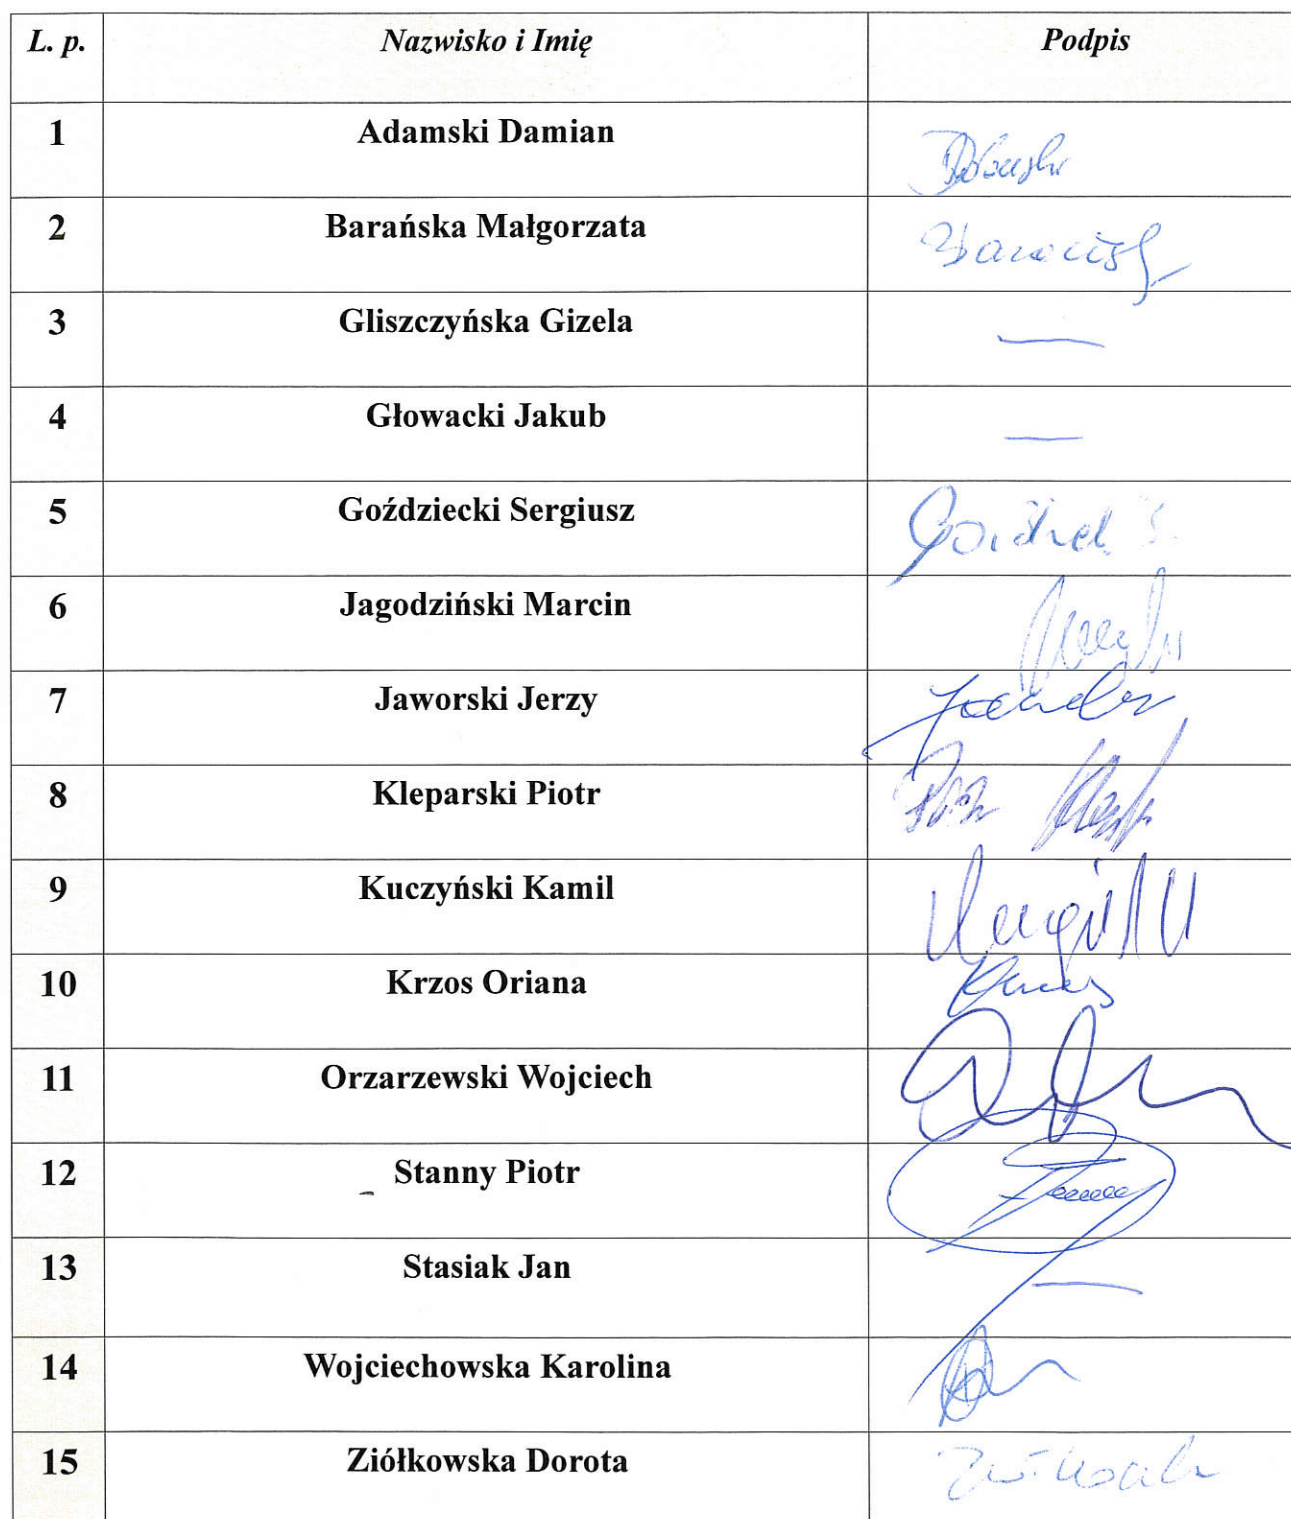 L. p. Nazwisko i Imię Podpis
1 Adamski Damian
2 Barańska Małgorzata
3 Gliszczyńska Gizela —
4 Głowacki Jakub —
5 Goździecki Sergiusz
6 Jagodziński Marcin
7 Jaworski Jerzy
8 Kleparski Piotr
9 Kuczyński Kamil
10 Krzos Oriana
11 Orzarzewski Wojciech
12 Stanny Piotr
13 Stasiak Jan —
14 Wojciechowska Karolina
15 Ziółkowska Dorota